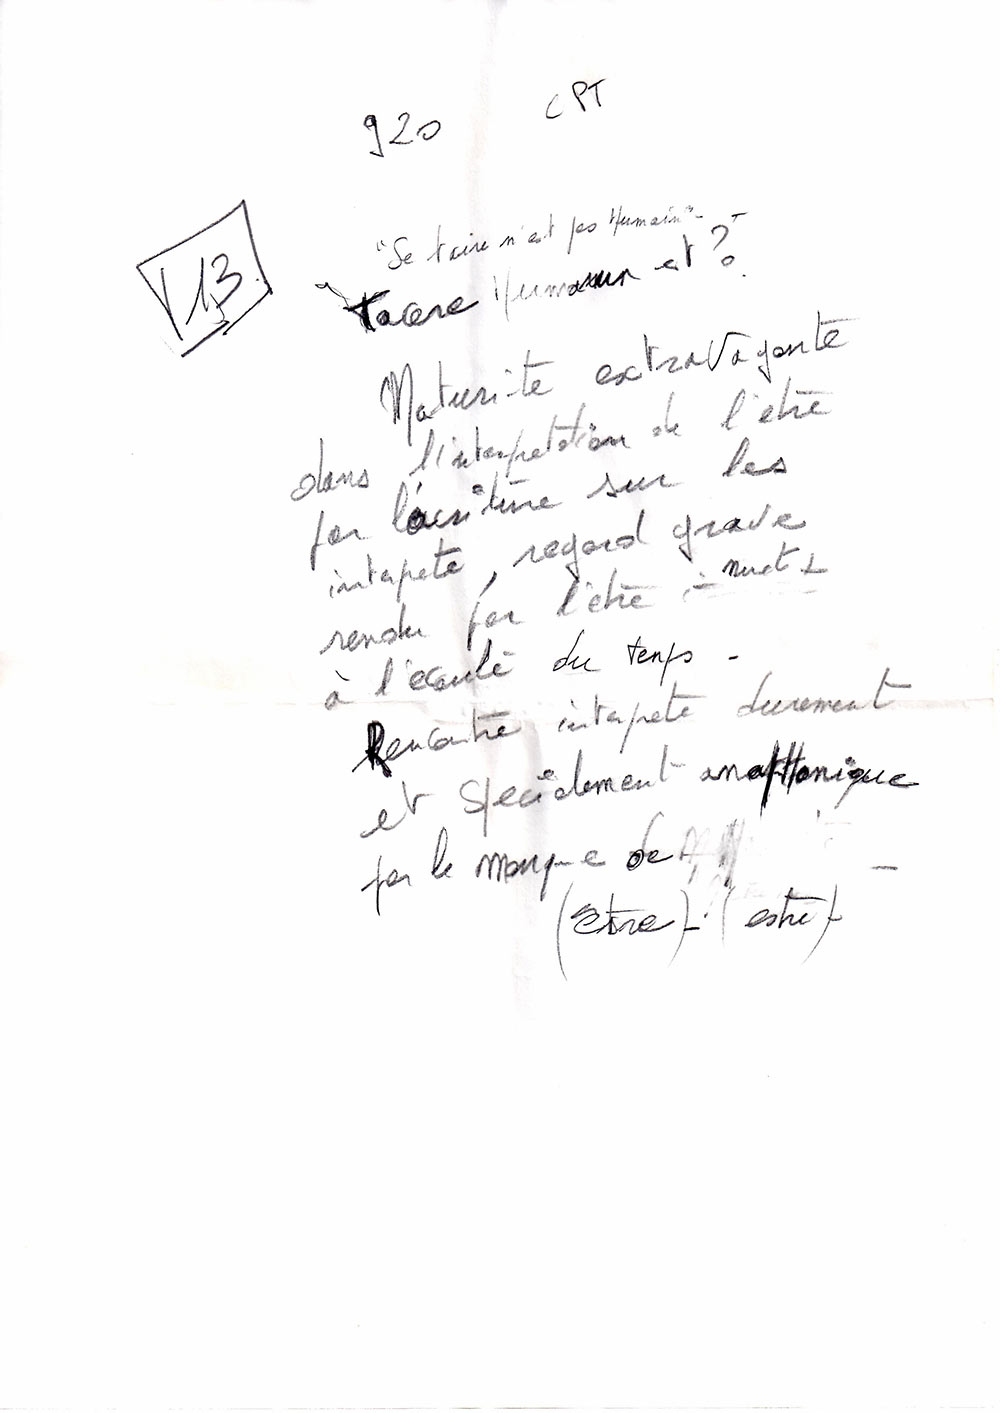 920 CPT
"Se taire n'est pas Humain"-
13
Tacere Humanum est ?
Maturité extravagante
dans l'interpretation de l'être
par l'écriture sur les
interpete, regard grave
rendu par l'être - muet -
à l'écoute du temps -
Rencontre interpete durement
et specialement anaphonique
par le manque de
(Etre) - (estre) -